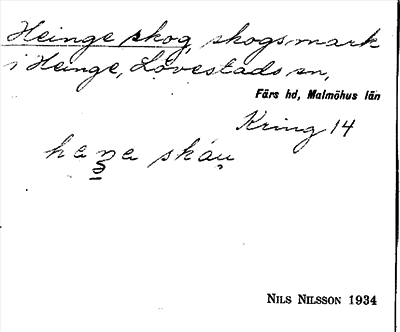 Heinge skog, skogsmark
i Heinge, Lövestads sn,
Färs hd, Malmöhus län
Kring 14
skáu
NILS NILSSON 1934